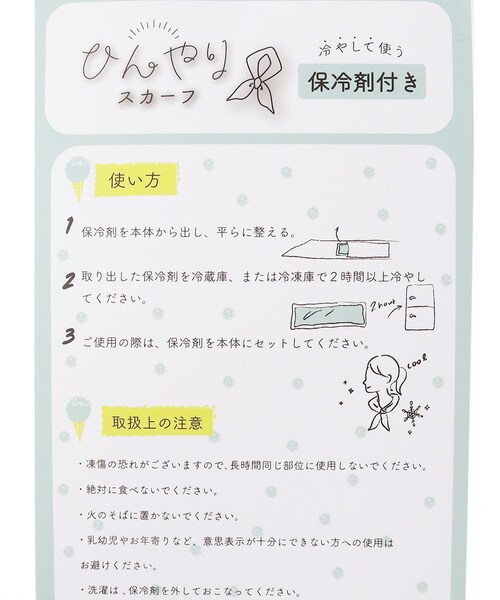 ひんやり
スカーフ
冷やして使う
保冷剤付き
使い方
1 保冷剤を本体から出し、平らに整える。
2 取り出した保冷剤を冷蔵庫、または冷凍庫で2時間以上冷やし
てください。
2hour
3 ご使用の際は、保冷剤を本体にセットしてください。
COOL
取扱上の注意
・凍傷の恐れがございますので、長時間同じ部位に使用しないでください。
・絶対に食べないでください。
・火のそばに置かないでください。
・乳幼児やお年寄りなど、意思表示が十分にできない方への使用は
お避けください。
・洗濯は、保冷剤を外しておこなってください。